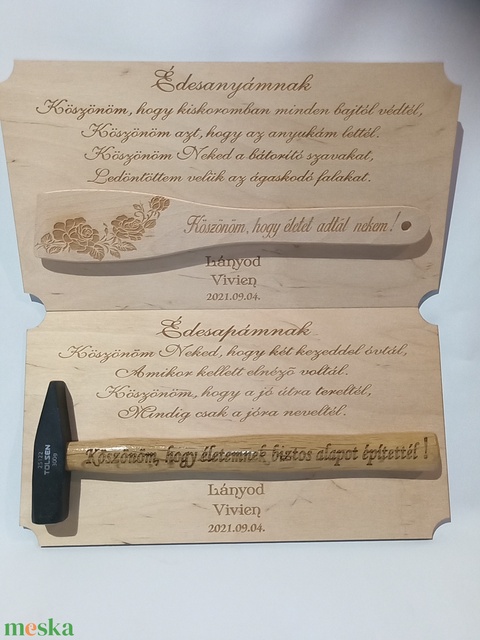 Édesanyámnak
Köszönöm, hogy kiskoromban minden bajtól védtél,
Köszönöm azt, hogy az anyukám lettél.
Köszönöm Neked a bátorító szavakat,
Ledöntöttem velük az ágaskodó falakat.
Köszönöm, hogy életet adtál nekem!
Lányod
Vivien
2021.09.04.
Édesapámnak
Köszönöm Neked, hogy két kezeddel óvtál,
Amikor kellett elnéző voltál.
Köszönöm, hogy a jó útra tereltél,
Mindig csak a jóra neveltél.
TOLSEN
Köszönöm, hogy életemnek biztos alapot építettél !
Lányod
Vivien
2021.09.04.
meska